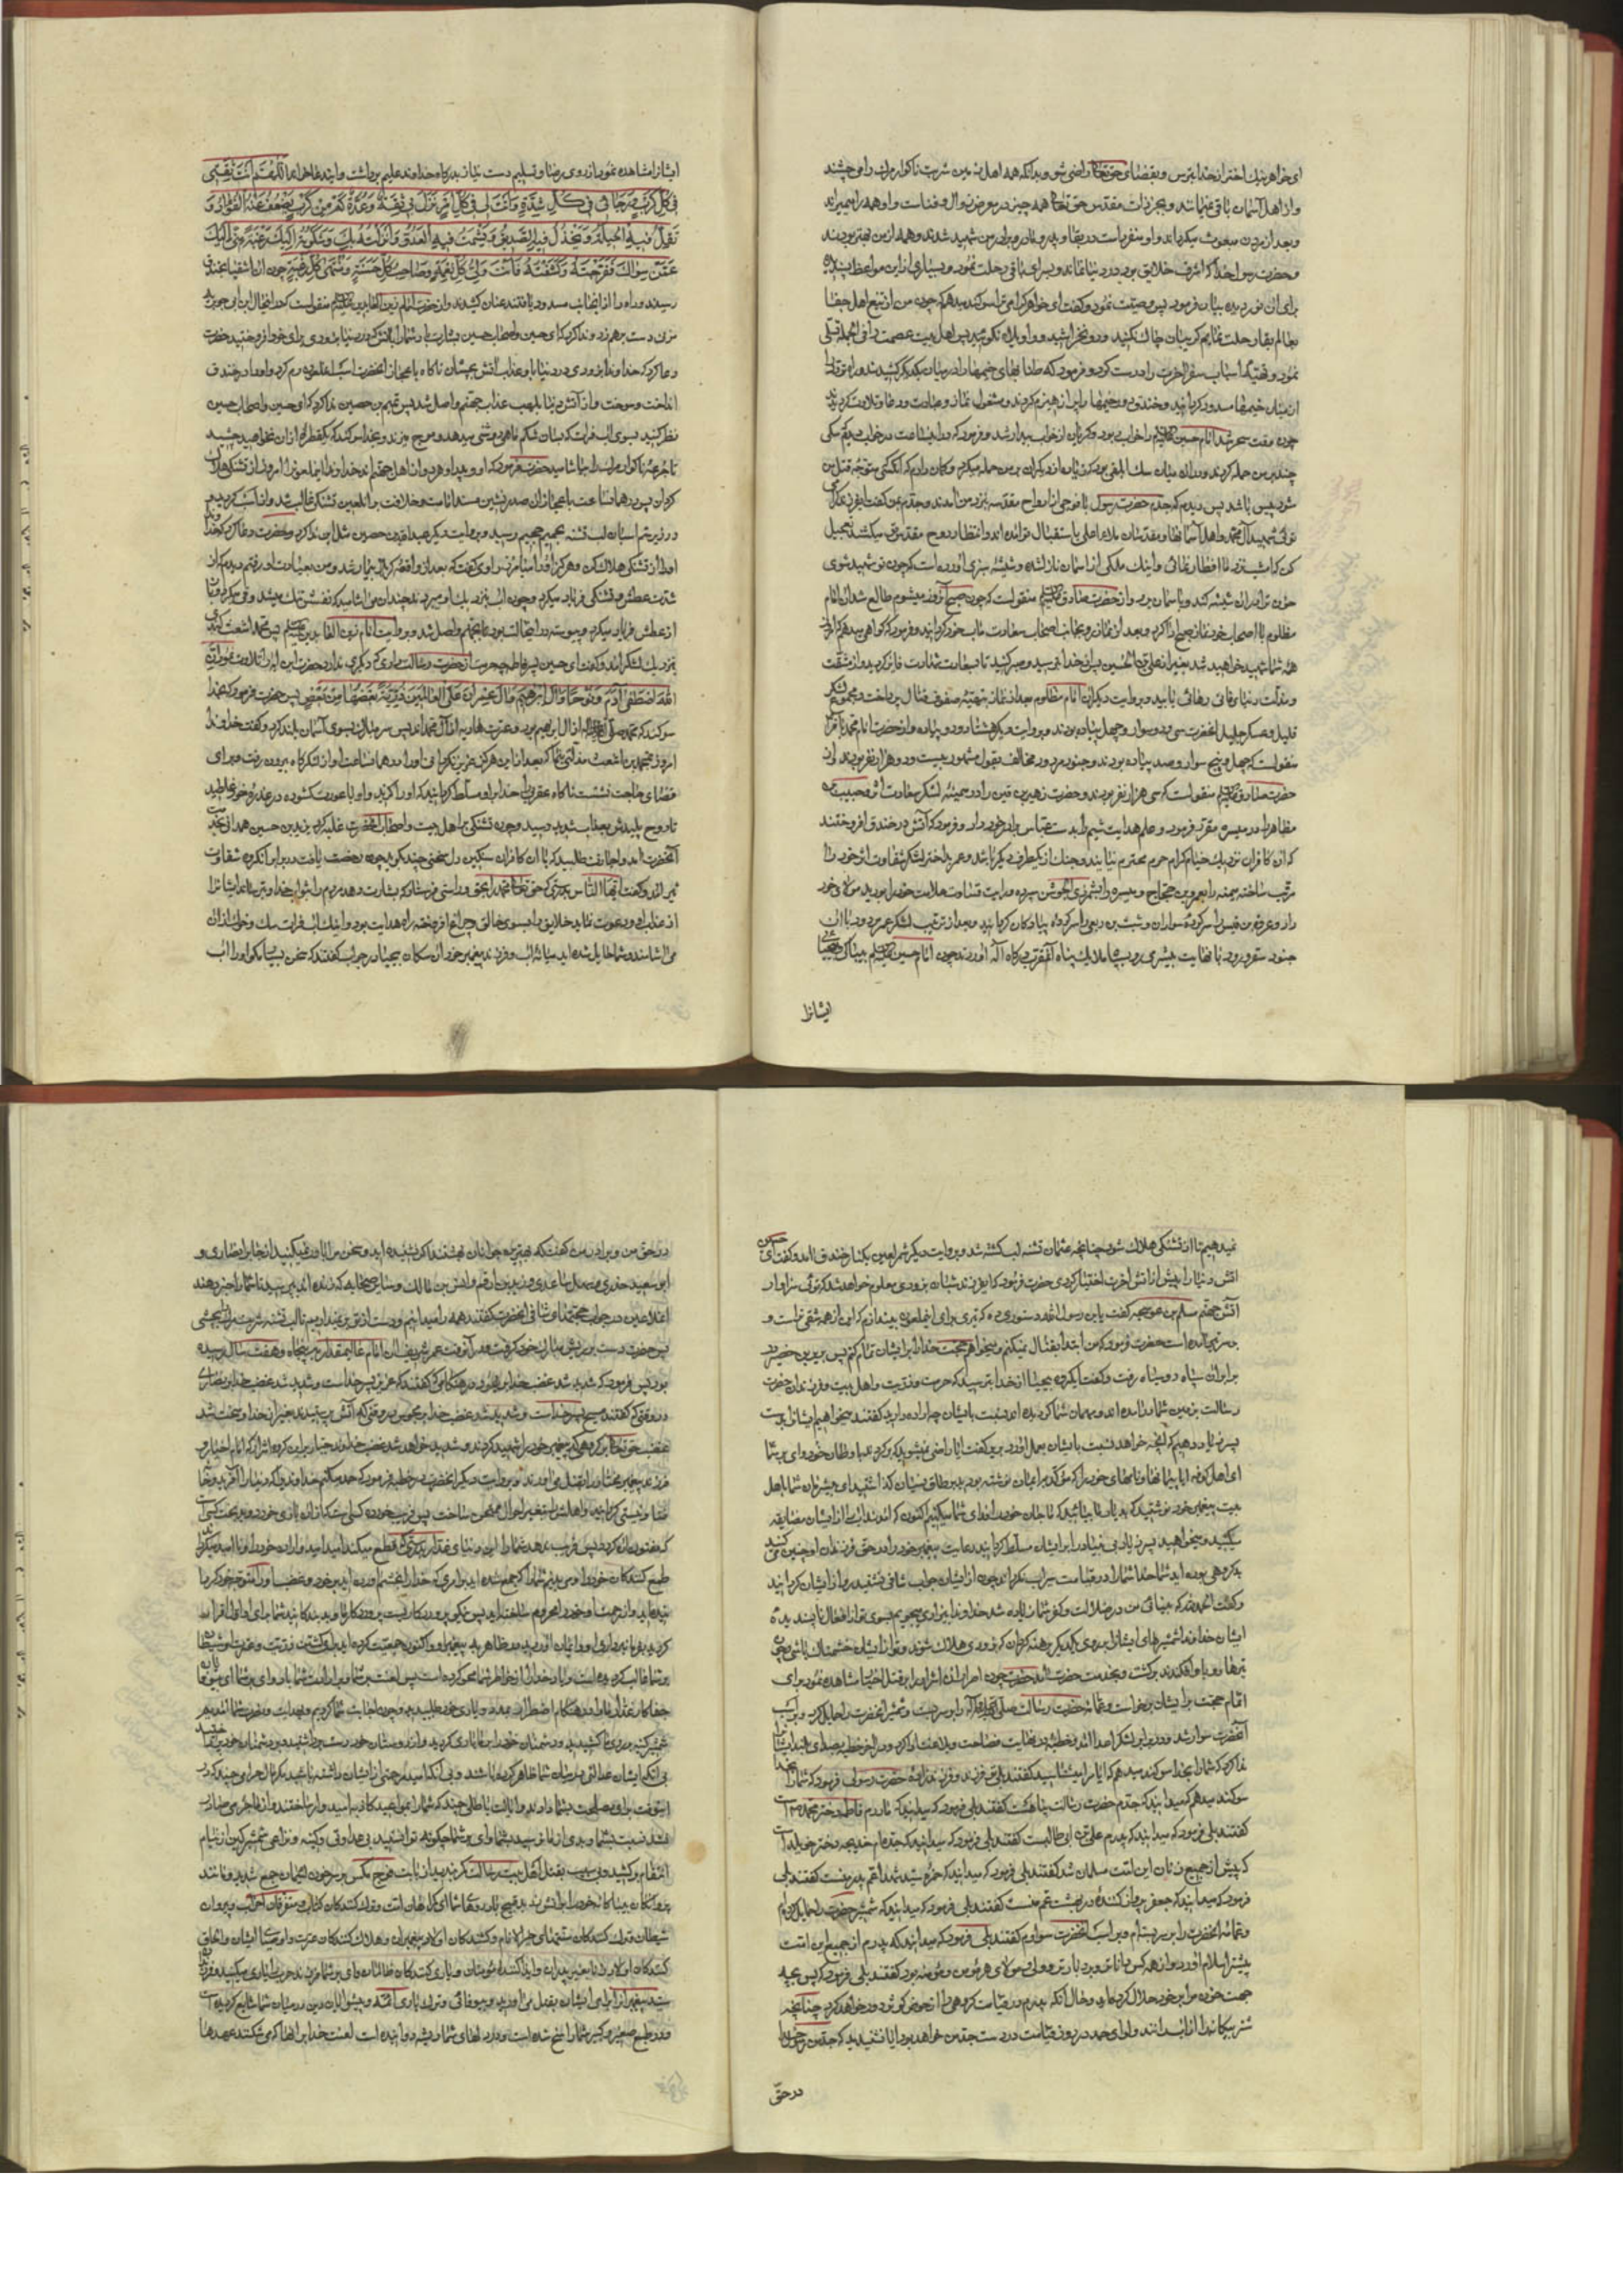 ای خواهر نیک اختر از خدا بترس و بقضای حق تعالی راضی شو و بدانکه همه اهل زمین شربت ناگوار مرگ را می چشند
و از اهل آسمان باقی نمی مانند و بجز ذات مقدس حق تعالی همه چیز در معرض زوال و فناست و او همه را میمیراند
و بعد از مردن مبعوث میگرداند و او منفرد است در بقا و پدر و مادر و برادر من شهید شدند و همه از من بهتر بودند
و حضرت رسول خدا که اشرف خلایق بود در دنیا نماند و بسرای باقی رحلت نمود و بسیاری از این مواعظ پسندیده
برای آن نور دیده بیان فرمود پس وصیت نمود و گفت ای خواهر گرامی ترا سوگند میدهم که چون من از تیغ اهل جفا
بعالم بقا رحلت نمایم گریبان چاک نکنید و رو مخراشید و واویلاه نگوئید پس اهل بیت عصمت را فی الجمله تسلی
نمود و تهیه اسباب سفر آخرت را درست کرد و فرمود که طنابهای خیمها را در میان یکدیگر کشیدند و راه تردد را
از میان خیمها مسدود گردانید و خندق دور خیمها را پر از هیزم کردند و مشغول نماز و عبادت و دعا و تلاوت گردیدند
چون وقت سحر شد امام حسین را خواب ربود و گریان از خواب بیدار شد و فرمود که در این ساعت در خواب دیدم سگی
چند بر من حمله کردند و در آن میان سگ ابلقی بود که زیاده از دیگران بر من حمله میکرد و گمان دارم که آنکسی متوجه قتل من
شود پیس باشد پس دیدم که جدم حضرت رسول با فوجی از ارواح مقدسه بنزد من آمدند و جدم بمن گفت ای فرزند گرامی
توئی شهید آل محمد و اهل آسمانها و مقدسان ملاء اعلی باستقبال تو آمده اند و انتظار روح مقدس تو میکشند تعجیل
کن که امشب نزد ما افطار نمائی و اینک ملکی از آسمان نازل شده و شیشه سبزی آورده است که چون تو شهید شوی
خون ترا در آن شیشه کند و بآسمان برد و از حضرت صادق منقولست که چون صبح آنروز میشوم طالع شد آن امام
مظلوم با اصحاب خود نماز صبح ادا کرد و بعد از نماز رو بجانب اصحاب سعادت مآب خود گردانید و فرمود که گواهی میدهم که امروز
همه شما شهید خواهید شد بغیر از علی بن الحسین پس از خدا بترسید و صبر کنید تا بسعادت شهادت فایز گردید و از مشقت
و مذلت دنیای فانی رهائی یابید و بروایت دیگر آن امام مظلوم بعد از نماز بتهیه صفوف قتال پرداخت و مجموع لشکر
قلیل و عسکر جلیل آنحضرت سی و دو سوار و چهل پیاده بودند و بروایت دیگر هشتاد و دو پیاده و از حضرت امام محمد باقر
منقولست که چهل و پنج سوار و صد پیاده بودند و جنود مردود مخالف بقول مشهور بیست و دو هزار نفر بودند و از
حضرت صادق منقولست که سی هزار نفر بودند و حضرت زهیر بن قین را در میمنه لشکر سعادت اثر و حبیب بن
مظاهر را در میسره مقرر فرمود و علم هدایت شیم را بدست عباس برادر خود داد و فرمود که آتش در خندق افروختند
که آن کافران نزدیک خیام کرام حرم محترم نیایند و جنگ از یکطرف دیگر باشد و عمر بد اختر لشکر شقاوت اثر خود را
مرتب ساخته میمنه را بعمرو بن حجاج و میسره را بشمر ذی الجوشن سپرد و رایت ضلالت علامت خود را بدرید مولای خود
داد و عروة بن قیس را سرکرده سواران و شبث بن ربعی را سرکرده پیادگان گردانید و بعد از ترتیب لشکر عمر مردود با آن
جنود سقر ورود با نهایت بیشرمی رو بسپاه ملایک پناه آن مقرب درگاه اله آوردند چون امام حسین بیباکی و بیحیائی
ایشانرا
ایشانرا مشاهده نمود از روی رضا و تسلیم دست نیاز بدرگاه خداوند علیم برداشت و ایندعا خواند اللهم انت ثقتی
فی کل کرب و رجائی فی کل شدة و انت لی فی کل امر نزل بی ثقة و عدة کم من کرب یضعف عنه الفؤاد و
تقل فیه الحیلة و یخذل فیه الصدیق و یشمت فیه العدو و انزلته بک و شکوته الیک رغبة منی الیک
عمن سواک ففرجته و کشفته فانت ولی کل نعمة و صاحب کل حسنة و منتهی کل رغبة چون آن اشقیا بخندق
رسیدند و راه را از آنجانب مسدود یافتند عنان کشیدند و از حضرت امام زین العابدین منقولست که در آنحال ابن ابی جویریه
مزنی دست برهم زد و ندا کرد که ای حسین و اصحاب حسین بشارت باد شما را بآتش که در دنیا بزودی برای خود افروختید حضرت
دعا کرد که خداوندا بزودی در دنیا باو عذاب آتش بچشان ناگاه باعجاز آنحضرت اسب آنملعون رم کرد و او را در خندق
انداخت و سوخت و از آتش دنیا بلهیب عذاب جهنم واصل شد پس تمیم بن حصین ندا کرد که ای حسین و اصحاب حسین
نظر کنید بسوی آب فرات که بسان شکم ماهی روشنی میدهد و موج میزند و بخدا سوگند که یکقطره از آن نخواهید چشید
تا جرعه ناگوار مرگ را بیاشامید حضرت فرمود که او و پدر او هر دو از اهل جهنم اند خداوندا اینملعونرا امروز از تشنگی هلاک
گردان پس در همانساعت باعجاز آن صدر نشین مسند امامت و خلافت بر آنلعین تشنگی غالب شد و از اسب گردید و
در زیر سم اسبان لب تشنه بحمیم جحیم رسید و بروایت دیگر عبدالله بن حصین مثل این ندا کرد و حضرت دعا کرد که خداوندا
او را از تشنگی هلاک کن و هرگز او را میامرز راوی گفت که بعد از واقعه کربلا بیمار شد و من بعیادت او رفتم دیدم که از
شدت عطش و تشنگی فریاد میکرد و چون آب بنزدیک او میبردند چندان می آشامید که نفسش تنگ میشد و قی میکرد و باز
از عطش فریاد میکرد و پیوسته در آنحالت بود تا بجهنم واصل شد و بروایت امام زین العابدین پس محمد اشعث کندی
بنزدیک لشکر آمد و گفت ای حسین پسر فاطمه چه حرمت از حضرت رسالت داری که دیگری ندارد حضرت این آیه را تلاوت نمود ان
الله اصطفی آدم و نوحا و آل ابرهیم و آل عمران علی العالمین ذریة بعضها من بعض پس حضرت فرمود که بخدا
سوگند که محمد از آل ابرهیم بود و عترت هادیه از آل محمد اند پس سر مبارک بسوی آسمان بلند کرد و گفت خداوندا
امروز بمحمد بن اشعث مذلتی بنما که بعد از این هرگز عزیز نگردد فی الفور او را در همانساعت از لشکرگاه بیرون رفت و برای
قضای حاجت نشست ناگاه عقربی را خدا بر او مسلط گردانید که او را گزید و او با عورت گشوده در عذره خود غلطید
تا روح پلیدش بعذاب شدید رسید و چون تشنگی بر اهل بیت و اصحاب آنحضرت غلبه کرد بریر بن حصین همدانی بخدمت
آنحضرت آمد و اجازت طلبید که با آن کافران سنگین دل سخنی چند بگوید چون رخصت یافت در برابر آنگروه شقاوت
اثر آمد و گفت ایها الناس بدرستیکه حق تعالی محمد را بحق و راستی فرستاد که بشارت دهد مردم را بثواب خدا و بترساند ایشانرا
از عذاب او و دعوت نماید خلایق را بسوی خالق و چراغ افروخته راه هدایت بود و اینک آب فرات سگ و خوک از آن
می آشامند و شما حایل شده اید میانه آب و فرزند پیغمبر خود آن سگان بیحیا در جواب گفتند که سخن بسیار مگو او را آب
نمیدهیم تا از تشنگی هلاک شود چنانچه عثمان تشنه لب کشته شد و بروایت دیگر شمر لعین بکنار خندق آمد و گفت ای حسین
آتش دنیا را پیش از آتش آخرت اختیار کردی حضرت فرمود که ای فرزند شبان بزودی معلوم خواهد شد که توئی سزاوار
آتش جهنم مسلم بن عوسجه گفت یابن رسول الله دستوری ده که تیری برای اینملعون بیندازم که این از همه شقی تر است و
بر سر تیر آمده است حضرت فرمود که من ابتدا بقتال نمیکنم و میخواهم حجت خدا را بر ایشان تمام کنم پس بریر بن خضیر در
برابر آن سپاه رو سیاه رفت و گفت ای گروه بیحیا از خدا بترسید که حرمت و ذریت و اهل بیت و فرزندان حضرت
رسالت بزمین شما درآمده اند و مهمان شما گردیده اند نسبت بایشان چه اراده دارید گفتند میخواهیم ایشانرا بدست
پسر زیاد دهیم که آنچه خواهد نسبت بایشان بعمل آورد بریر گفت آیا راضی نمیشوید که برگردند باوطان خود وای بر شما
ای اهل کوفه آیا پیمانها و نامهای خود را که مؤکد بایمان نوشته بودید بر طاق نسیان گذاشتید ای بیشرمان شما باهل
بیت پیغمبر خود نوشتید که بدیار ما بیائید که ما جان خود را فدای شما میکنیم اکنون که آمدند آب را از ایشان مضایقه
میکنید و میخواهید پسر زیاد بی بنیاد را بر ایشان مسلط گردانید رعایت پیغمبر خود را در حق فرزندان او چنین می کنید
بد گروهی بوده اید شما خدا شما را در قیامت سیراب نگرداند چون از ایشان جواب شافی نشنید رو از ایشان گردانید
و گفت الحمد لله که بینائی من در ضلالت و کفر شما زیاده شد خداوندا بیزاری میجویم بسوی تو از افعال ناپسندیده
ایشان خداوندا شمشیرهای ایشانرا بر روی یکدیگر برهنه گردان که بزودی هلاک شوند و تو از ایشان خشمناک باشی پس
تیرها بر او افکندند برگشت و بخدمت حضرت آمد حضرت چون اصرار آن اشرار را بر قتل اخیار مشاهده نمود برای
اتمام حجت بر ایشان برخاست و عمامه حضرت رسالت را بر سر بست و شمشیر آنحضرت را حمایل کرد و بر اسب
آنحضرت سوار شد و در برابر لشکر اعدا آمد و خطبه در نهایت فصاحت و بلاغت ادا کرد و در آخر خطبه بصدای بلند ایشانرا
ندا کرد که شما را بخدا سوگند میدهم که آیا مرا میشناسید گفتند بلی توئی فرزند و فرزندزاده حضرت رسول فرمود که شما را بخدا
سوگند میدهم که میدانید که جدم حضرت رسالت پناهست گفتند بلی فرمود که میدانید که مادرم فاطمه دختر محمد است
گفتند بلی فرمود که میدانید که پدرم علی بن ابی طالبست گفتند بلی فرمود که میدانید که جده ام خدیجه دختر خویلد است
که پیش از جمیع زنان این امت مسلمان شد گفتند بلی فرمود که میدانید که حمزه سید شهدا عم پدر منست گفتند بلی
فرمود که میدانید که جعفر پرواز کننده در بهشت عم منست گفتند بلی فرمود که میدانید که شمشیر حضرت را حمایل کرده ام
و عمامه آنحضرت را بر سر بسته ام و بر اسب آنحضرت سوارم گفتند بلی فرمود که میدانید که پدرم از جمیع این امت
پیشتر اسلام آورد و از همه کس داناتر و بردبارتر و ولی و مولای هر مؤمن و مؤمنه بود گفتند بلی فرمود که پس بچه
جهت خون مرا بر خود حلال کرده اید و حال آنکه پدرم در قیامت گروهی را از حوض کوثر دور خواهد کرد چنانچه
شتر بیگانه را از آب رانند و لوای حمد در روز قیامت در دست جد من خواهد بود آیا نشنیدید که جد من
در حق
در حق من و برادر من گفت که بهترین جوانان بهشتند اگر شنیده اید و سخن مرا باور نمیکنید از جابر انصاری و
ابو سعید خدری و سهل ساعدی و زید بن ارقم و انس بن مالک و سایر صحابه که زنده اند بپرسید تا شما را خبر دهند
آنملاعین در جواب حجتهای شافی آنحضرت گفتند همه را میدانیم و دست از تو بر نمیداریم تا لب تشنه شربت مرگ را بچشی
پس حضرت دست بر ریش مبارک خود گرفت و در آنوقت عمر شریف آن امام عالیمقدار به پنجاه و هفت سال رسیده
بود پس فرمود که شدید شد غضب خدا بر یهود در هنگامی که گفتند که عزیر پسر خداست و شدید شد غضب خدا بر نصاری
در وقتی که گفتند مسیح پسر خداست و شدید شد غضب خدا بر مجوس در وقتی که آتش پرستیدند بغیر از خدا و سخت شد
غضب حق تعالی بر گروهی که پیغمبر خود را شهید کردند و شدید خواهد شد غضب خداوند جبار بر این گروه اشرار که امام اخیار و
فرزند پیغمبر مختار را بقتل می آورند و بروایت دیگر آنحضرت در خطبه فرمود که حمد میکنم خداوندی را که دنیا را آفرید و خانه
فنا و نیستی گردانید و اهلش را بتغیر احوال ممتحن ساخت پس فریب خورده کسی است که از آن بازی خورد و بدبخت کسی
که مفتون آن گردد پس فریب ندهد شما را این دنیای غدار بدرستیکه قطع میکند امید امیدواران خود را و ناامید میگرداند
طمع کنندگان خود را و می بینم شما را که جمع شده اید برای امری که خدا را بخشم آورده اید بر خود و غضب او را متوجه خود گردا
نیده اید و از رحمت او خود را محروم ساخته اید پس نیکو پروردگاریست پروردگار ما و بد بندگانید شما برای او اول اقرار
کردید بفرمانبرداری او و ایمان آوردید در ظاهر به پیغمبر او و اکنون جمعیت کرده اید برای کشتن ذریت و عترت او شیطان
بر شما غالب گردیده است و یاد خدا را از خاطر شما محو کرده است پس لعنت بر شما و بر ارادت شما باد وای بر شما ای بیوفایان
جفاکار غدار ما را در هنگام اضطرار بمدد و یاری خود طلبیدید و چون اجابت شما کردیم و بهدایت و نصرت شما آمدیم
شمشیر کین بر روی ما کشیدید و دشمنان خود را بر ما یاری کردید و از دوستان خود دست برداشتید و بر دشمنان خود پیوستید
بی آنکه ایشان عدالتی در میان شما ظاهر کرده باشند و بی آنکه امید رحمتی از ایشان داشته باشید مگر مال حرامی چند که در
اینوقت برای مصلحت بشما دادند و ایالت باطلی چند که شما را بوعده کاذبه امیدوار ساختند و از ما جرمی صادر
نشد نسبت بشما و بدی از ما نرسید بشما وای بر شما چگونه توانستید بی عداوتی و کینه و نزاعی شمشیر کین از نیام
انتقام برکشید و بی سبب بقتل اهل بیت رسالت کمر بندید از بابت فوج مگس بر سر خوان لئیمان جمع شدید و مانند
پروانگان بیباکانه خود را بر آتش زدید قبیح باد روهای شما ای گمراهان امت و ترک کنندگان کتاب و متفرقان احزاب و پیروان
شیطان و ترک کنندگان سنتهای خیر الانام و کشندگان اولاد پیغمبران و هلاک کنندگان عترت و اوصیاء ایشان و الحاق
کنندگان اولاد زنا بغیر پدران و ایذا کننده مؤمنان و یاری کنندگان ظالمان وای بر شما فرزند حرب را یاری میکنید و فرزند
سید پیغمبران را برای ایشان بقتل می آورید و بیوفائی و ترک یاری ائمه و پیشوایان دین در میان شما شایع گردیده است
و در طبع صغیر و کبیر شما راسخ شده است و در دلهای شما ریشه دوانیده است لعنت خدا بر آنها که می شکنند عهدها